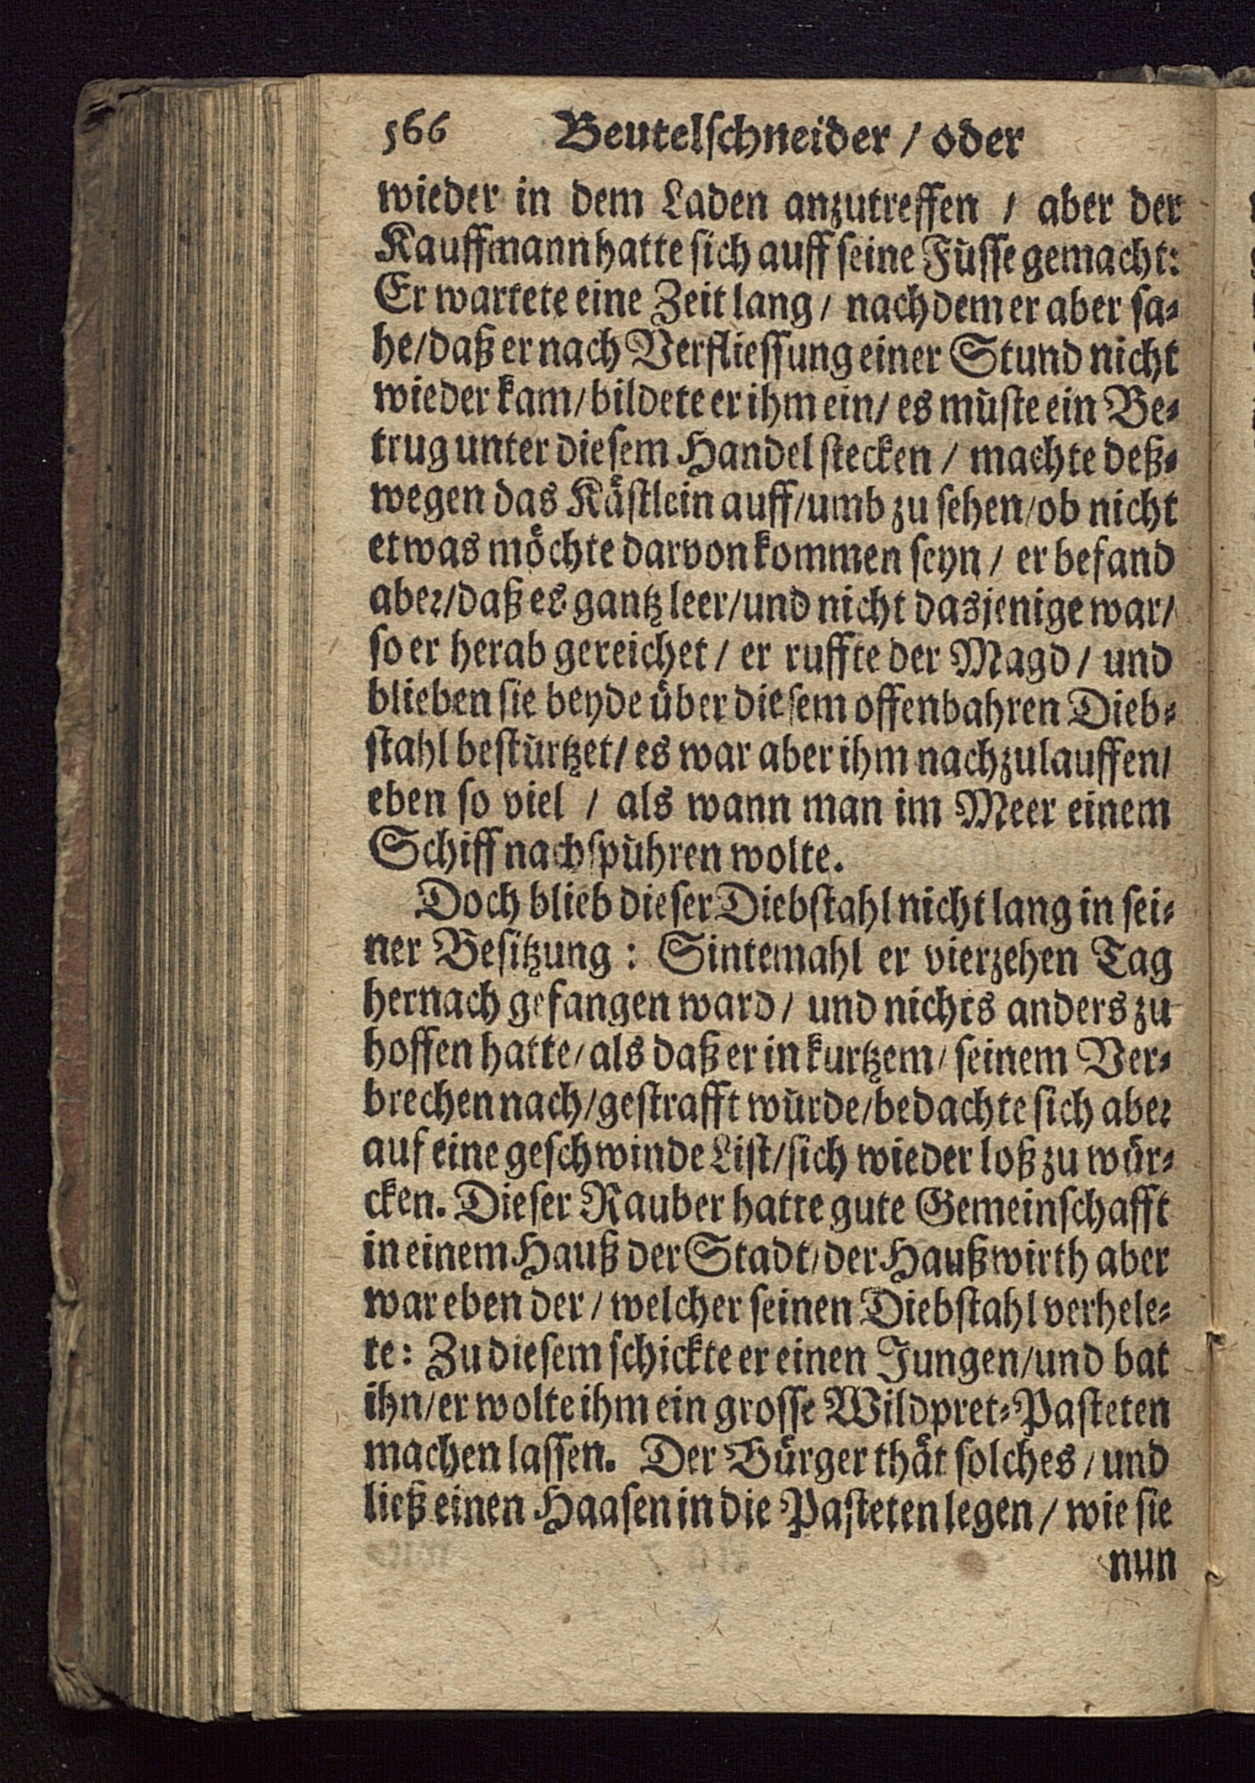 566 Beutelschneider / oder
wieder in dem Laden anzutreffen / aber der
Kauffmann hatte sich auff seine Füsse gemacht:
Er wartete eine Zeit lang / nachdem er aber sa-
he / daß er nach Verfliessung einer Stund nicht
wieder kam / bildete er ihm ein / es müste ein Be-
trug unter diesem Handel stecken / machte deß-
wegen das Kästlein auff / umb zu sehen / ob nicht
etwas möchte darvon kommen seyn / er befand
aber / daß es gantz leer / und nicht dasjenige war /
so er herab gereichet / er ruffte der Magd / und
blieben sie beyde über diesem offenbahren Dieb-
stahl bestürtzet / es war aber ihm nachzulauffen /
eben so viel / als wann man im Meer einem
Schiff nachspühren wolte.
Doch blieb dieser Diebstahl nicht lang in sei-
ner Besitzung: Sintemahl er vierzehen Tag
hernach gefangen ward / und nichts anders zu
hoffen hatte / als daß er in kurtzem / seinem Ver-
brechen nach / gestrafft würde / bedachte sich aber
auf eine geschwinde List / sich wieder loß zu wür-
cken. Dieser Rauber hatte gute Gemeinschafft
in einem Hauß der Stadt / der Haußwirth aber
war eben der / welcher seinen Diebstahl verhele-
te: Zu diesem schickte er einen Jungen / und bat
ihn / er wolte ihm ein grosse Wildpret-Pasteten
machen lassen. Der Bürger thät solches / und
ließ einen Haasen in die Pasteten legen / wie sie
nun